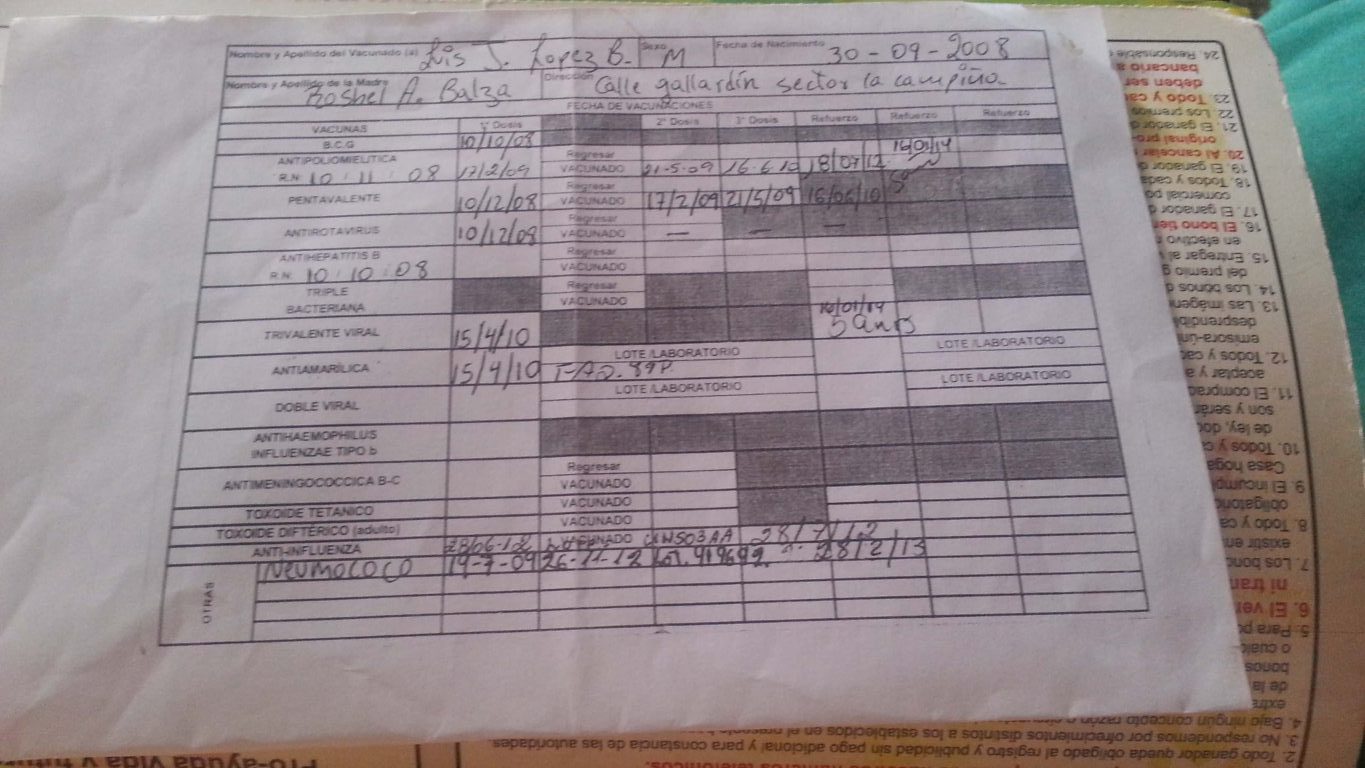 Nombre y Apellido del Vacunado (a) Luis J. Lopez B. Sexo M Fecha de Nacimiento 30-09-2008
Nombre y Apellido de la Madre Roshel A. Balza Dirección Calle gallardín sector la campiña
FECHA DE VACUNACIONES
VACUNAS 1ª Dosis 2ª Dosis 3ª Dosis Refuerzo Refuerzo Refuerzo
B.C.G 10/10/08
ANTIPOLIOMIELITICA Regresar 16/01/14
R.N: 10-11-08 17/2/09 VACUNADO 21-5-09 16-6-10 18/07/12
PENTAVALENTE Regresar
10/12/08 VACUNADO 17/2/09 21/5/09 16/06/10
ANTIROTAVIRUS Regresar
10/12/08 VACUNADO — — —
ANTIHEPATITIS B Regresar
R.N: 10-10-08 VACUNADO
TRIPLE Regresar
BACTERIANA VACUNADO
TRIVALENTE VIRAL 15/4/10 16/01/14
5 años
LOTE /LABORATORIO LOTE /LABORATORIO
ANTIAMARÍLICA 15/4/10
LOTE /LABORATORIO LOTE /LABORATORIO
DOBLE VIRAL
ANTIHAEMOPHILUS
INFLUENZAE TIPO b
ANTIMENINGOCOCCICA B-C Regresar
VACUNADO
TOXOIDE TETANICO VACUNADO
TOXOIDE DIFTÉRICO (adulto) VACUNADO
ANTI-INFLUENZA 28/06-12 VACUNADO
NEUMOCOCO 19-7-09 26-11-12 28/2/13
OTRAS
24. Responsable
bancario a
deben ser
23. Todo y ca
22. Los premios
21. El ganador d
original pro
20. Al cancelar
19. El ganador d
18. Todos y cada
comercial po
17. El ganador d
16. El bono tien
en efectivo
15. Entregar al
del premio
14. Los bonos d
13. Las imágen
desprendibl
emisora-ún
12. Todos y cad
aceptar y a
11. El comprad
son y serán
de ley, dod
10. Todos y c
Casa hoga
9. El incumpl
obligatorio
8. Todo y ca
existir en
7. Los bono
ni tran
6. El ver
5. Para po
o cualq
bonos
de la
extra
4. Bajo ningún concepto razón o
3. No respondemos por ofrecimientos distintos a los establecidos en el
2. Todo ganador queda obligado al registro y publicidad sin pago adicional y para constancia de las autoridades.
números telefónicos.
Pro-ayuda vida y futur